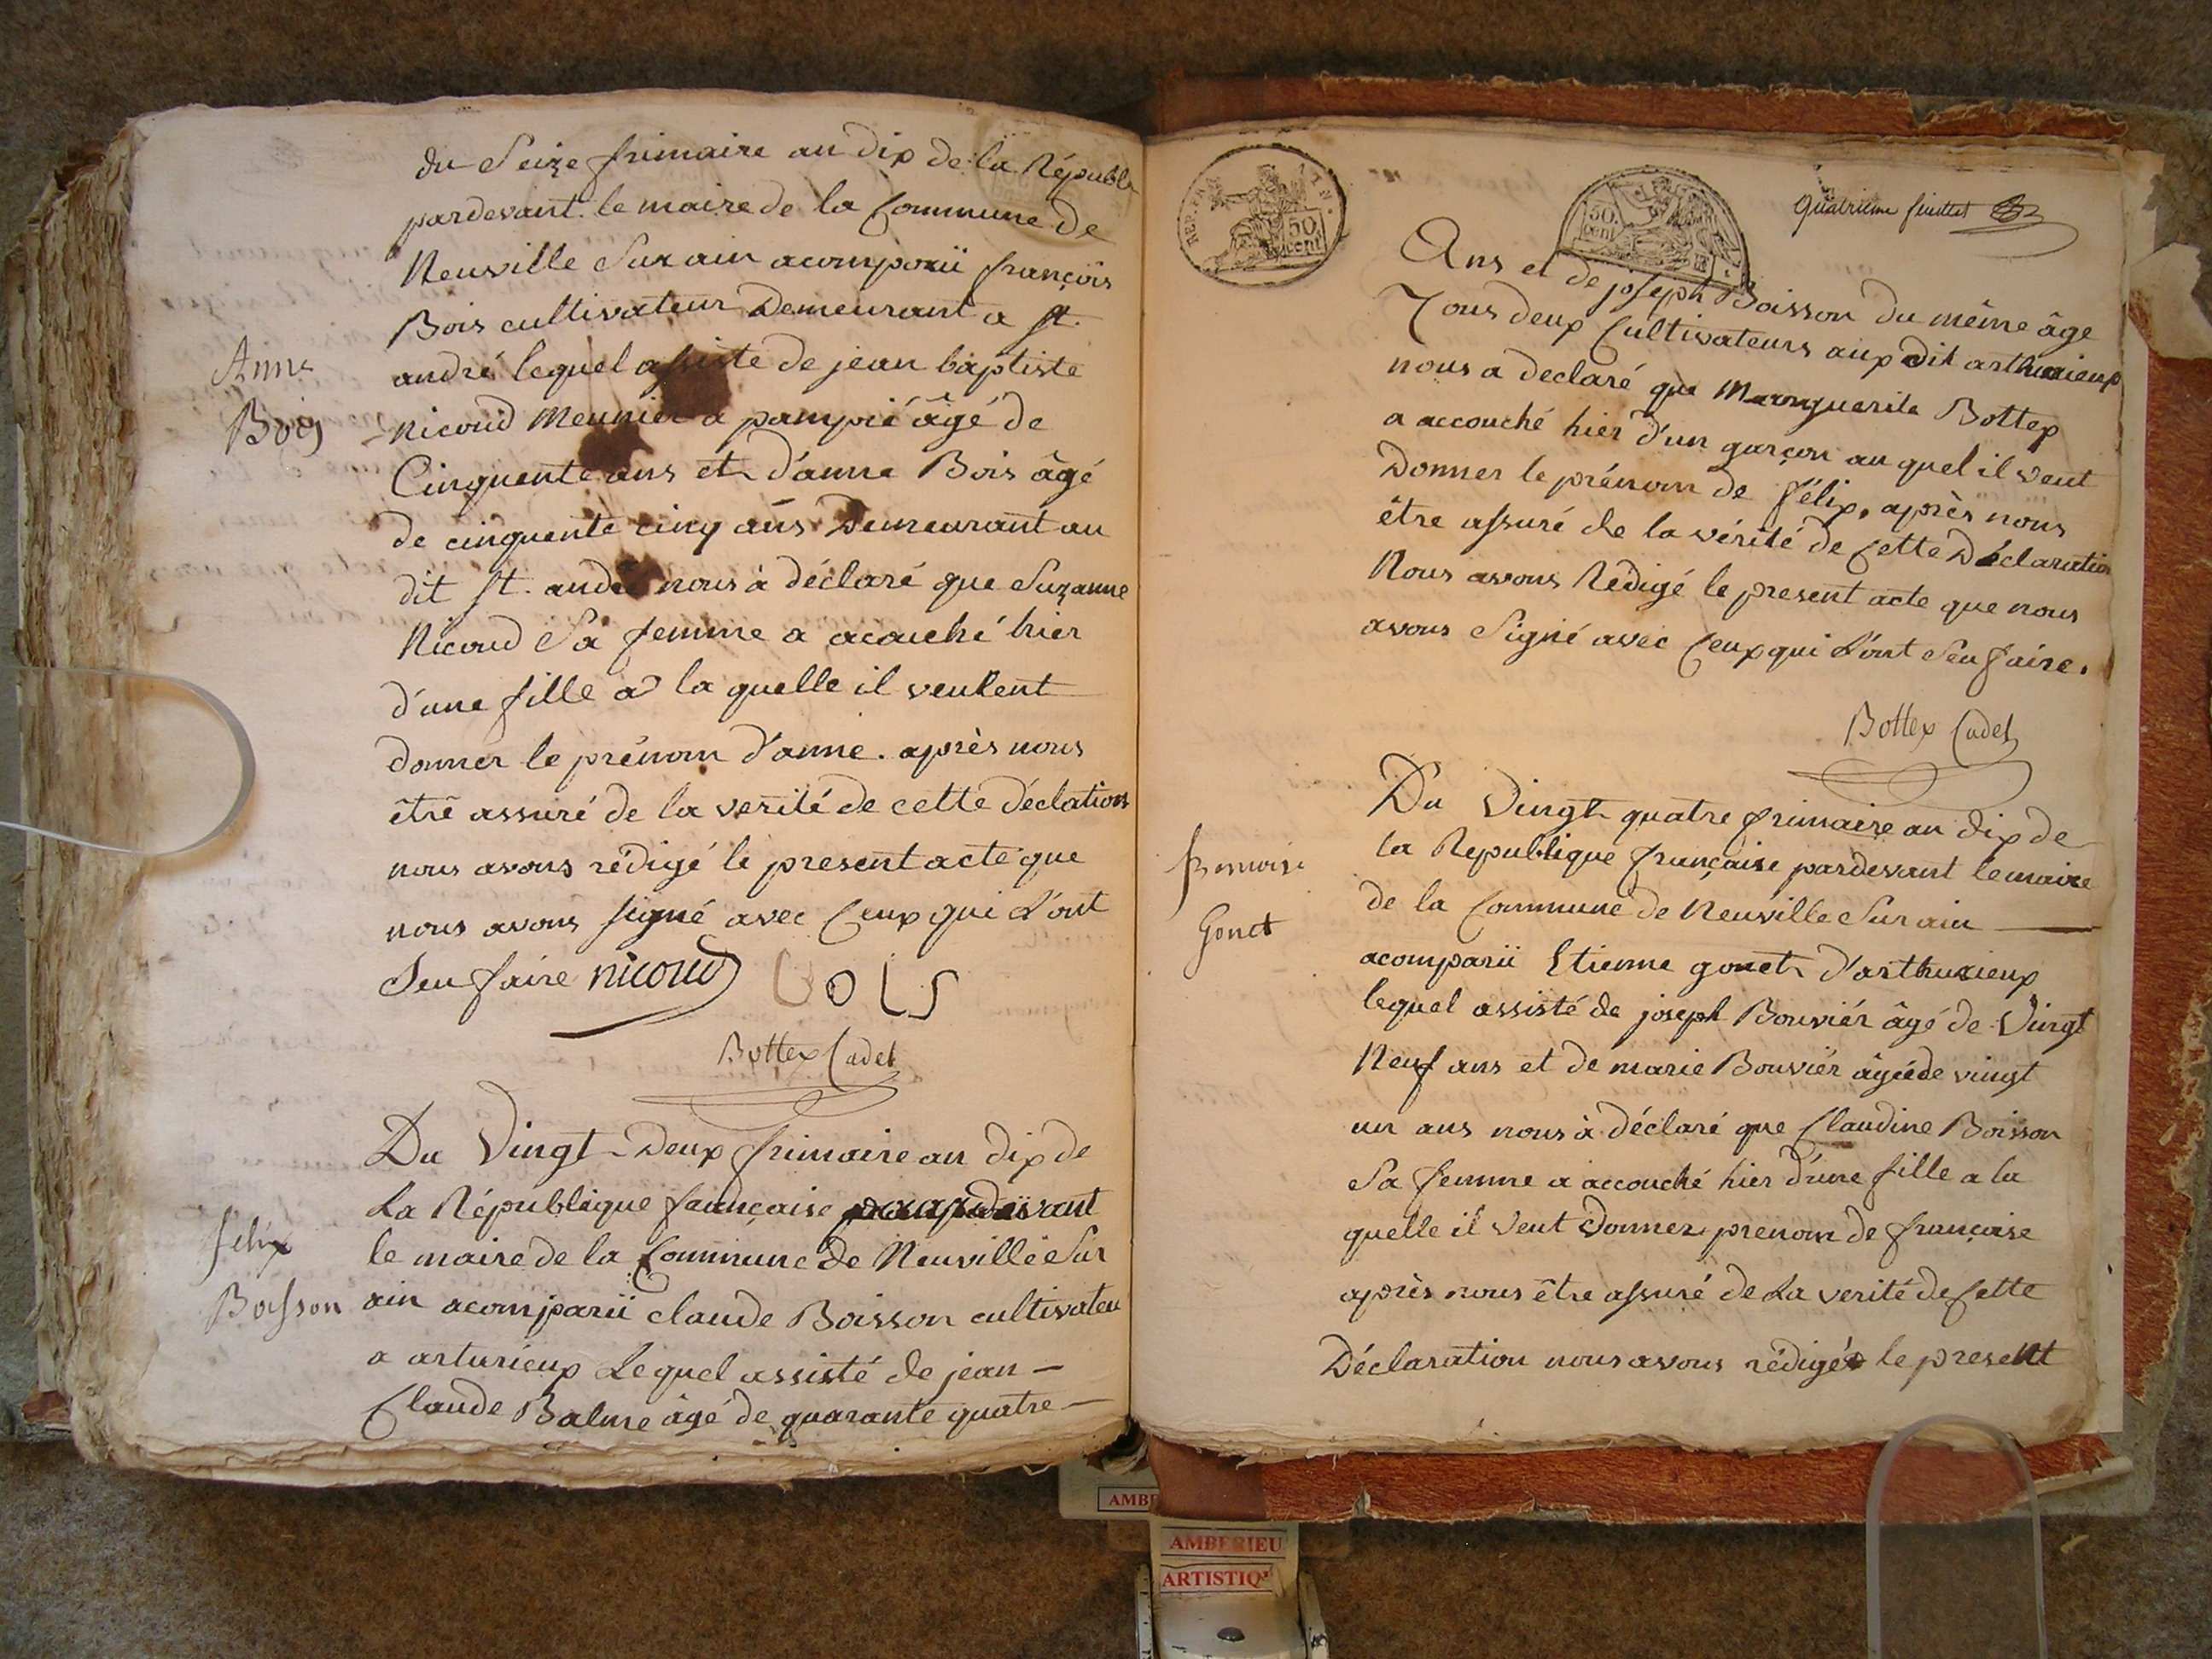 du Seize frimaire an dix de la Républ
pardevant le maire de la Commune de
Neuville Sur ain acomparü françois
Bois cultivateur Demeurant a St.
andré lequel assiste de jean baptiste
nicoud Meunier a pampié âgé de
Cinquente ans et d'anne Bois âgé
de cinquente cinq ans Demeurant au
dit St. andré nous à déclaré que Suzanne
Nicoud Sa femme a acouché hier
d'une fille a la quelle il veulent
donner le prénom d'anne. après nous
être assuré de la verité de cette déclation
nous avons rédigé le present acte que
nous avons signé avec Ceux qui L'ont
Seu faire nicoud bois
Bottex Cadet
Anne
Bois
Du Vingt-Deux frimaire an dix de
La République française pardevant
le maire de la Commune de Neuville Sur
ain acomparü claude Boisson cultivateu
a arturieux Lequel assisté de jean –
Claude Balme âgé de quarante quatre –
felix
Boisson
REP. FRA
50
cent
50.
cent
Quatrieme feuillet
Ans et de joseph Boisson du même âge
Tous deux Cultivateurs aux dit arthurieux
nous a declaré que Marguerite Bottex
a accouché hier d'un garçon au quel il veut
Donner le prénom de félix, après nous
être assuré de la vérité de Cette Déclaration
Nous avons Rédigé le present acte que nous
avons Signé avec Ceux qui L'ont Seu faire.
Bottex Cadet
Du Vingt quatre frimaire an dix de
la Republique française pardevant le maire
de la Commune de Neuville Sur ain
acomparü Etienne gonet d'arthurieux
lequel assisté de joseph Bouviér âgé de Vingt
Neuf ans et de marie Bouviér âgée de vingt
un ans nous à déclaré que Claudine Boisson
Sa femme a accouché hier d'une fille a la
quelle il Veut Donner prenom de française
après nous être assuré de La verité de Cette
Déclaration nous avons rédigé le present
Gonet
AMBE
AMBERIEU
ARTISTIQ